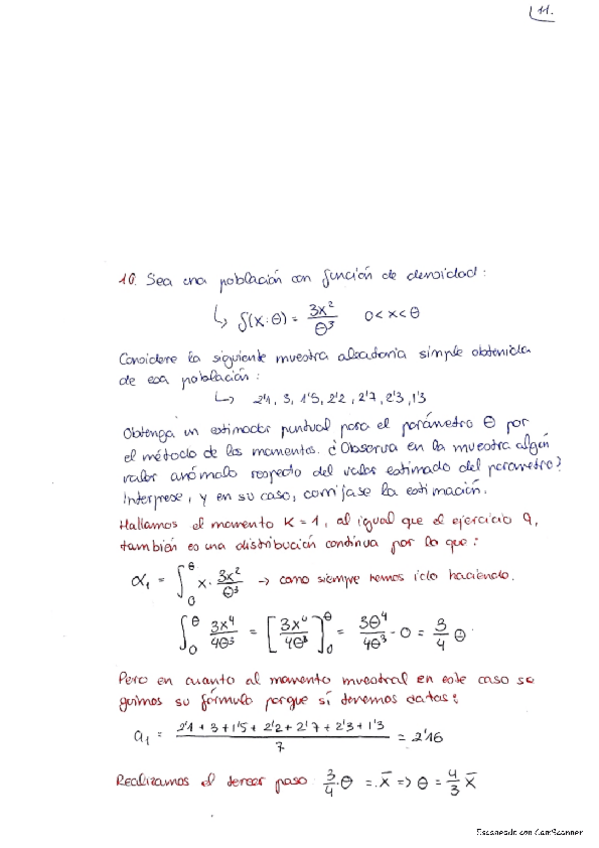 11.
10. Sea una población con función de densidad:
↳ f(x;θ) = 3x²/θ³   0<x<θ
Considere la siguiente muestra aleatoria simple obtenida
de esa población:
↳ 2'1, 3, 1'5, 2'2, 2'7, 2'3, 1'3
Obtenga un estimador puntual para el parámetro θ por
el método de los momentos. ¿Observa en la muestra algún
valor anómalo respecto del valor estimado del parámetro?
Interprese, y en su caso, corríjase la estimación.
Hallamos el momento K=1, al igual que el ejercicio 9,
también es una distribución continua por lo que:
α₁ = ∫₀^θ x · 3x²/θ³ → como siempre hemos ido haciendo.
∫₀^θ 3x⁴/4θ³ = [3x⁴/4θ³]₀^θ = 3θ⁴/4θ³ - 0 = 3/4 θ
Pero en cuanto al momento muestral en este caso se
guimos su fórmula porque sí tenemos datos:
a₁ = (2'1 + 3 + 1'5 + 2'2 + 2'7 + 2'3 + 1'3)/7 = 2'16
Realizamos el tercer paso: 3/4·θ = x̄ => θ = 4/3 x̄
Escaneado con CamScanner